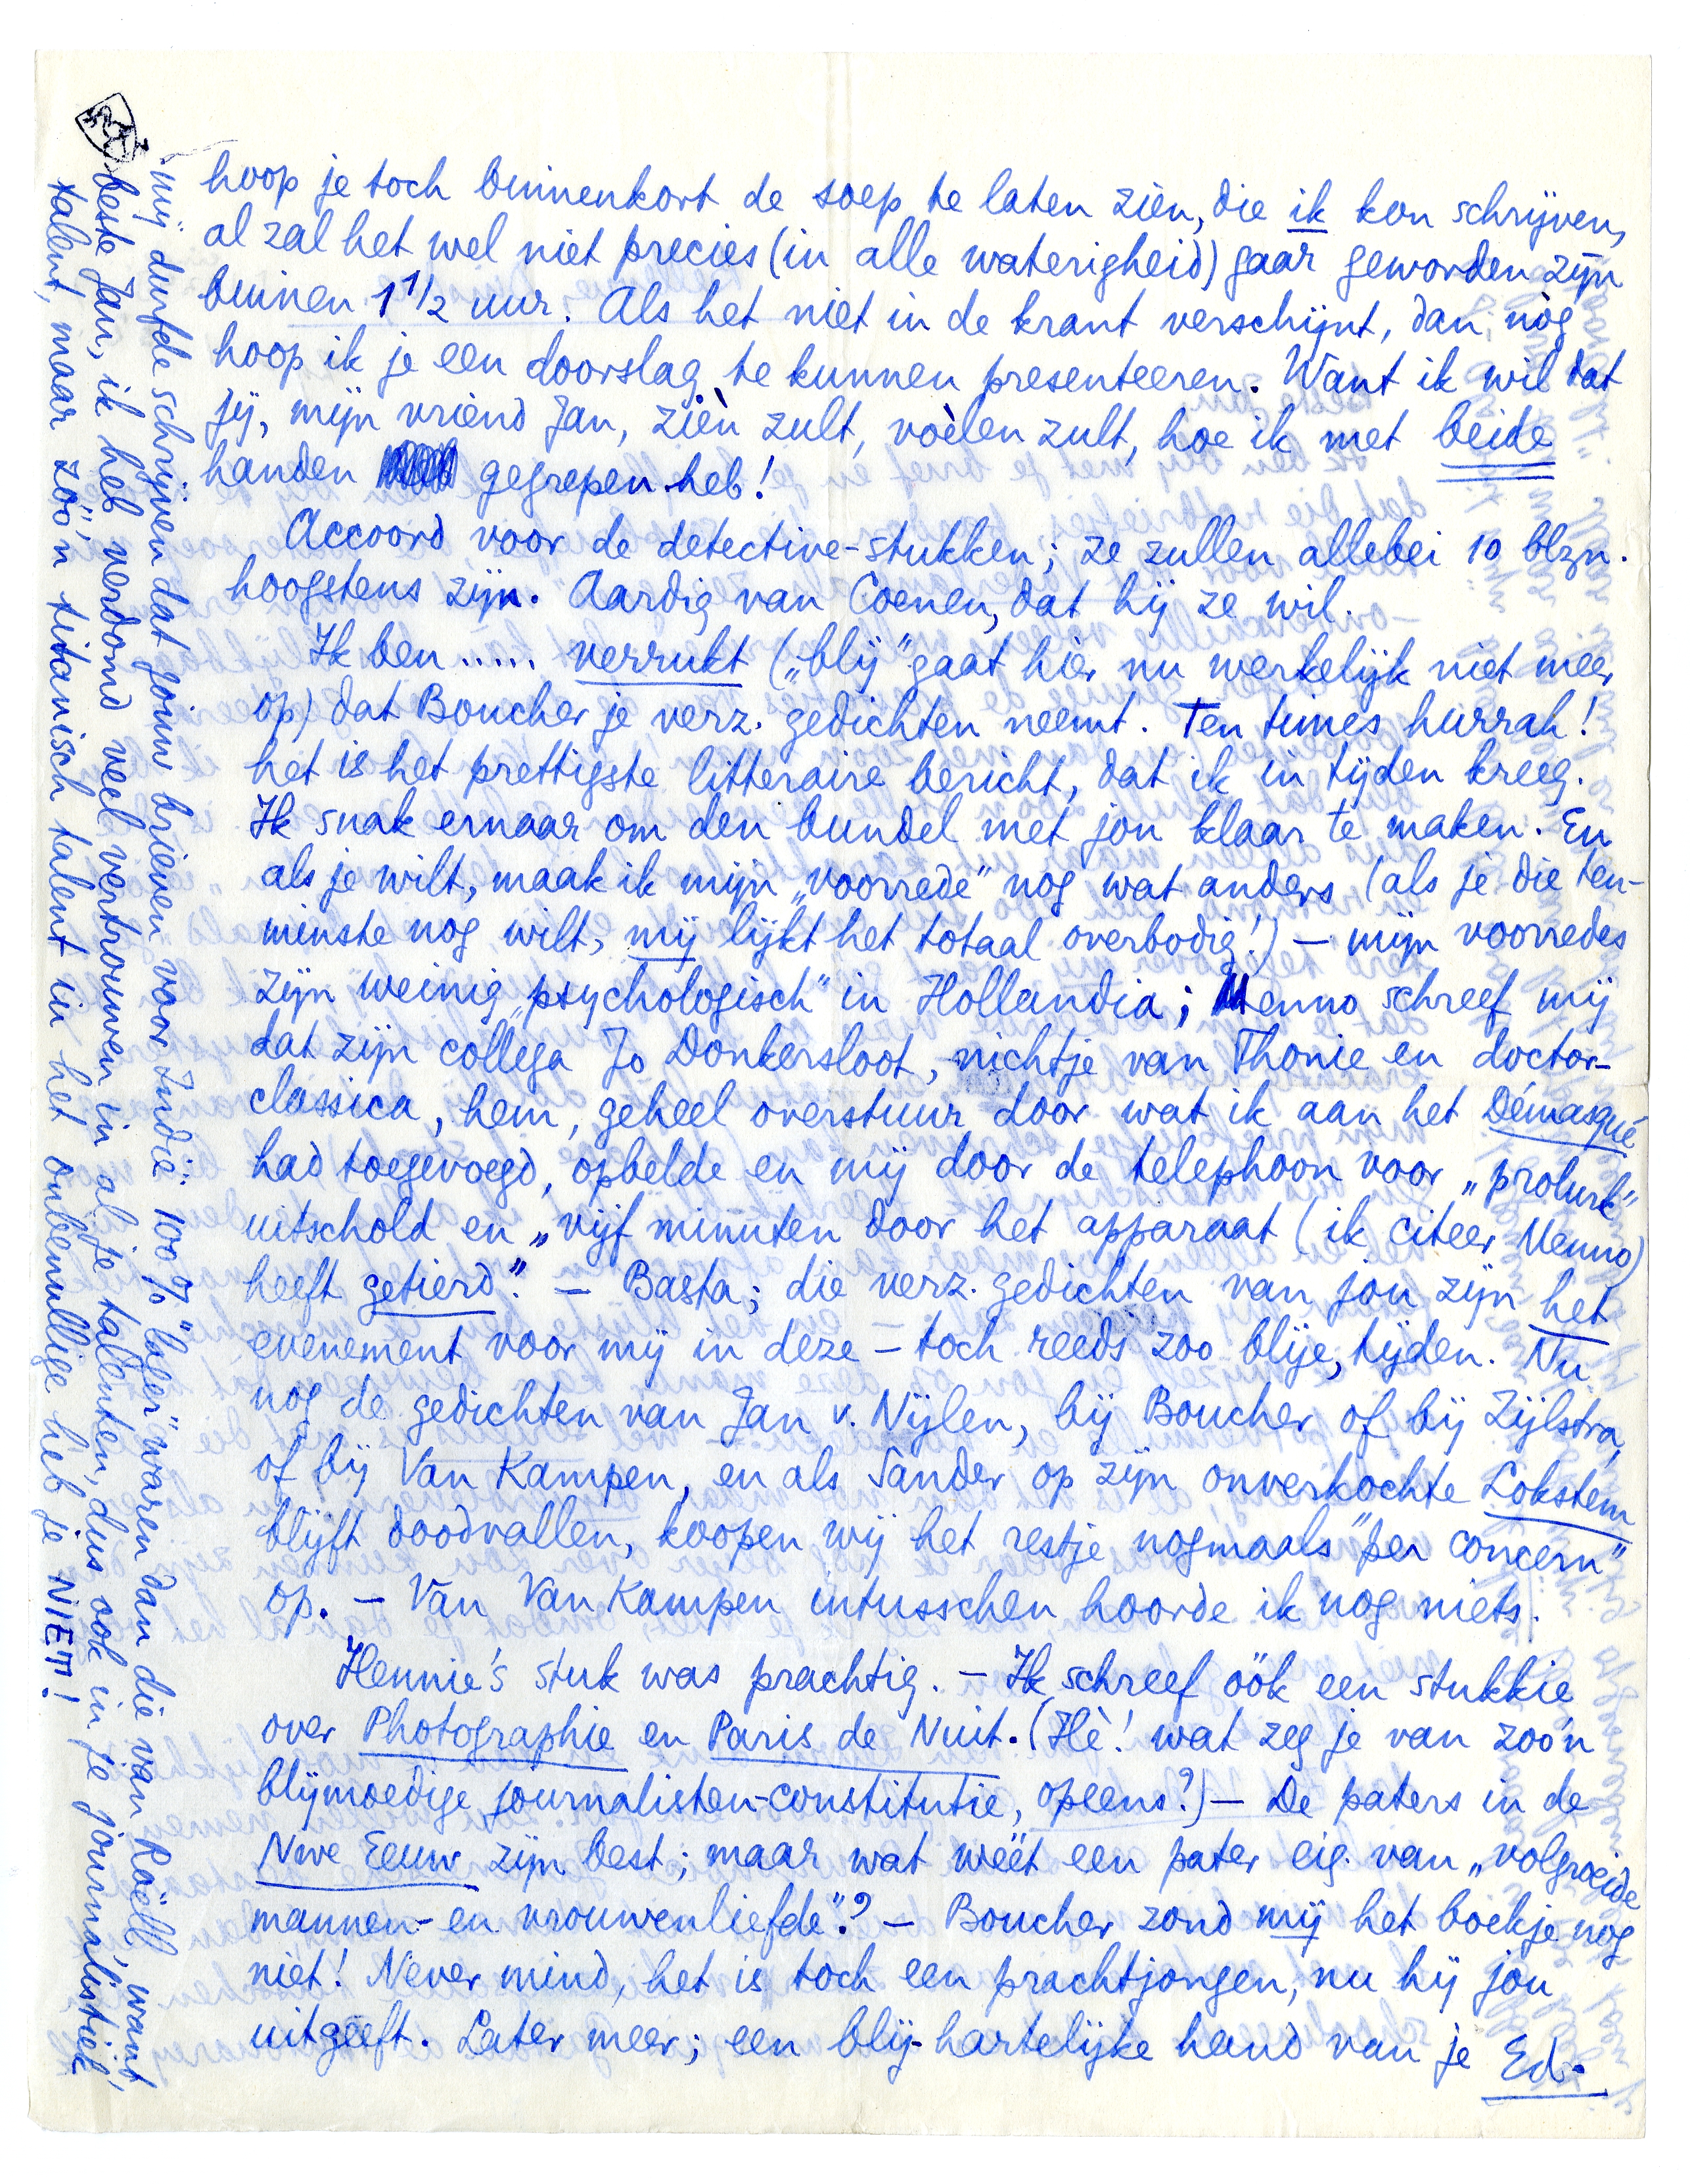 hoop je toch binnenkort de soep te laten zien, die ik kon schrijven,
al zal het wel niet precies (in alle waterigheid) gaar geworden zijn
binnen 1 1/2 uur. Als het niet in de krant verschijnt, dan nòg
hoop ik je een doorslag te kunnen presenteeren. Want ik wil dat
jij, mijn vriend Jan, zièn zult, voèlen zult, hoe ik met beide
handen gegrepen heb!
Accoord voor de detective-stukken; ze zullen allebei 10 blzn.
hoogstens zijn. Aardig van Coenen, dat hij ze wil.
Ik ben ..... verrukt („blij" gaat hier nu werkelijk niet meer
op) dat Boucher je verz. gedichten neemt. Ten times hurrah!
het is het prettigste litteraire bericht, dat ik in tijden kreeg.
Ik snak ernaar om den bundel met jou klaar te maken. En
als je wilt, maak ik mijn „voorrede" nog wat anders (als je die ten-
minste nog wilt, mij lijkt het totaal overbodig!) — mijn voorredes
zijn weinig „psychologisch" in Hollandia; Menno schreef mij
dat zijn collega Jo Donkersloot, nichtje van Thonie en doctor-
classica, hem, geheel overstuur door wat ik aan het Démasqué
had toegevoegd, opbelde en mij door de telephoon voor „prolurk"
uitschold en „vijf minuten door het apparaat (ik citeer Menno)
heeft getierd." — Basta; die verz. gedichten van jou zijn het
evenement voor mij in deze — toch reeds zoo blije, tijden. Nu
nog de gedichten van Jan v. Nijlen, bij Boucher of bij Zijlstra,
of bij Van Kampen, en als Sander op zijn onverkochte Lokstem
blijft doodvallen, koopen wij het restje nogmaals "per concern"
op. — Van Van Kampen intusschen hoorde ik nog niets.
Hennie's stuk was prachtig. — Ik schreef óók een stukkie
over Photographie en Paris de Nuit. (Hè! wat zeg je van zoo'n
blijmoedige journalisten-constitutie, opeens?) — De paters in de
Nwe Eeuw zijn best; maar wat wéét een pater eig. van „volgroeide
mannen- en vrouwenliefde"? — Boucher zond mij het boekje nog
niet! Never mind, het is toch een prachtjongen, nu hij jou
uitgeeft. Later meer; een blij-hartelijke hand van je Ed.
mij durfde schrijven dat jouw brieven voor Indië 100% "loler" waren dan die van Roëll, want,
beste Jan, ik heb verdomd veel vertrouwen in al je talenten, dus ook in je journalistiek
talent, maar zóó'n titanisch talent in het onbenullige heb je NIET!